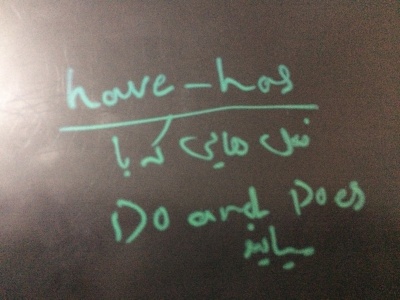 have-has
فعل هایی که با
Do and Does
میایند